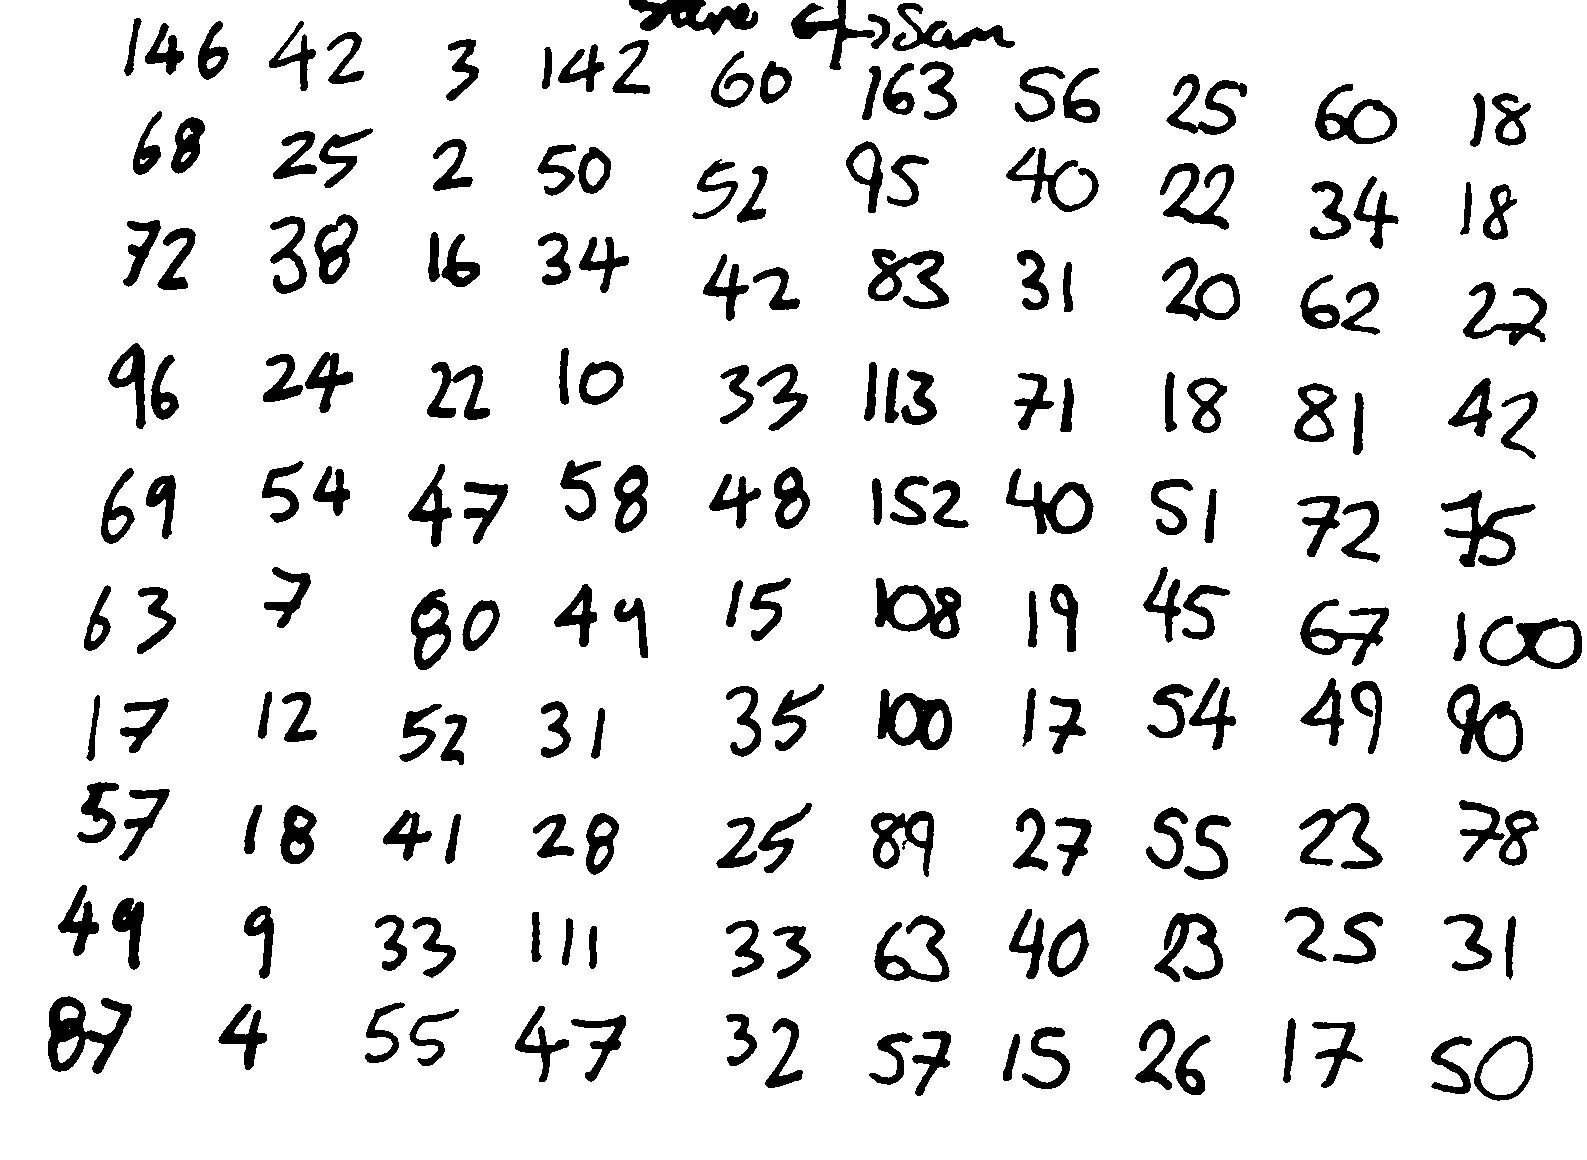 Sam
146 42 3 142 60 163 56 25 60 18
68 25 2 50 52 95 40 22 34 18
72 38 16 34 42 83 31 20 62 22
96 24 22 10 33 113 71 18 81 42
69 54 47 58 48 152 40 51 72 75
63 7 80 49 15 108 19 45 67 100
17 12 52 31 35 100 17 54 49 90
57 18 41 28 25 89 27 55 23 78
49 9 33 111 33 63 40 23 25 31
87 4 55 47 32 57 15 26 17 50